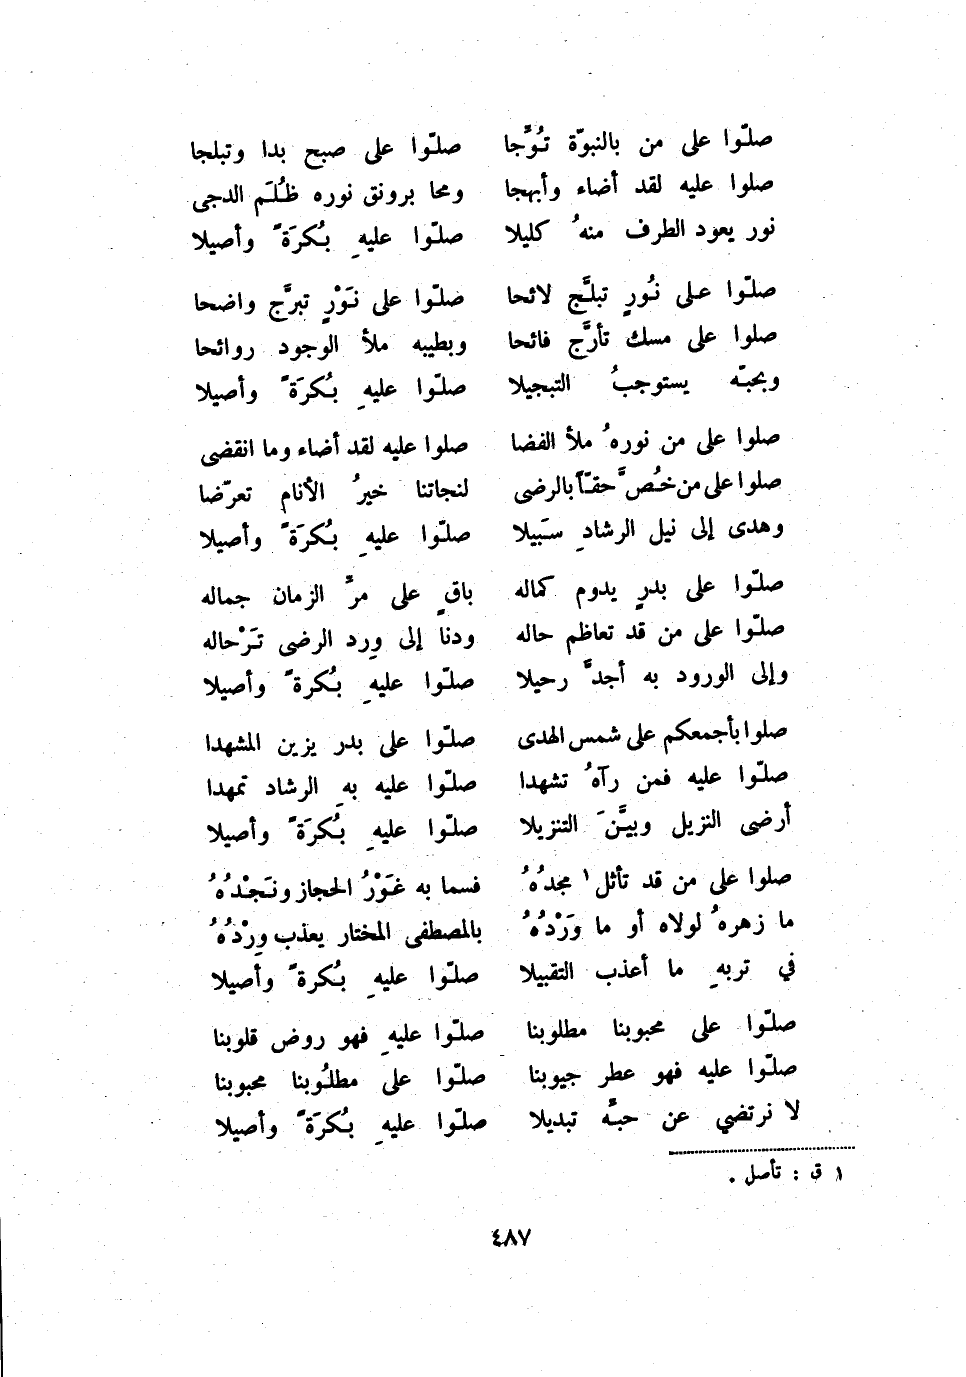 صلّوا على من بالنبوّة تُوَّجا صلّوا على صبح بدا وتبلجا
صلوا عليه لقد أضاء وأبهجا ومحا برونق نوره ظُلَم الدجى
نور يعود الطرف منهُ كليلا صلّوا عليهِ بُكرَةً وأصيلا
صلّوا على نُورٍ تبلَّج لائحا صلّوا على نَوْرٍ تبرَّج واضحا
صلوا على مسك تأرَّج فائحا وبطيبه ملأ الوجود روائحا
وبحبّه يستوجبُ التبجيلا صلّوا عليهِ بُكرَةً وأصيلا
صلوا على من نورهُ ملأ الفضا صلوا عليه لقد أضاء وما انقضى
صلوا على من خُصَّ حقّاً بالرضى لنجاتنا خيرُ الأنام تعرّضا
وهدى إلى نيل الرشادِ سَبيلا صلّوا عليهِ بُكرَةً وأصيلا
صلّوا على بدرٍ يدوم كماله باقٍ على مرِّ الزمان جماله
صلّوا على من قد تعاظم حاله ودنا إلى وِرد الرضى تَرْحاله
وإلى الورود به أجدَّ رحيلا صلّوا عليهِ بُكرةً وأصيلا
صلوا بأجمعكم على شمس الهدى صلّوا على بدر يزين المشهدا
صلّوا عليه فمن رآهُ تشهدا صلّوا عليه بهِ الرشاد تمهدا
أرضى النزيل وبيَّنَ التنزيلا صلّوا عليهِ بُكرَةً وأصيلا
صلوا على من قد تأثل١ مجدُهُ فسما به غَوْرُ الحجاز ونَجْدُهُ
ما زهرهُ لولاه أو ما وَرْدُهُ بالمصطفى المختار يعذب وِرْدُهُ
في تربهِ ما أعذب التقبيلا صلّوا عليهِ بُكرةً وأصيلا
صلّوا على محبوبنا مطلوبنا صلّوا عليهِ فهو روض قلوبنا
صلّوا عليه فهو عطر جيوبنا صلّوا على مطلُوبنا محبوبنا
لا نرتضي عن حبّه تبديلا صلّوا عليهِ بُكرَةً وأصيلا
١ ق : تأصل .
٤٨٧